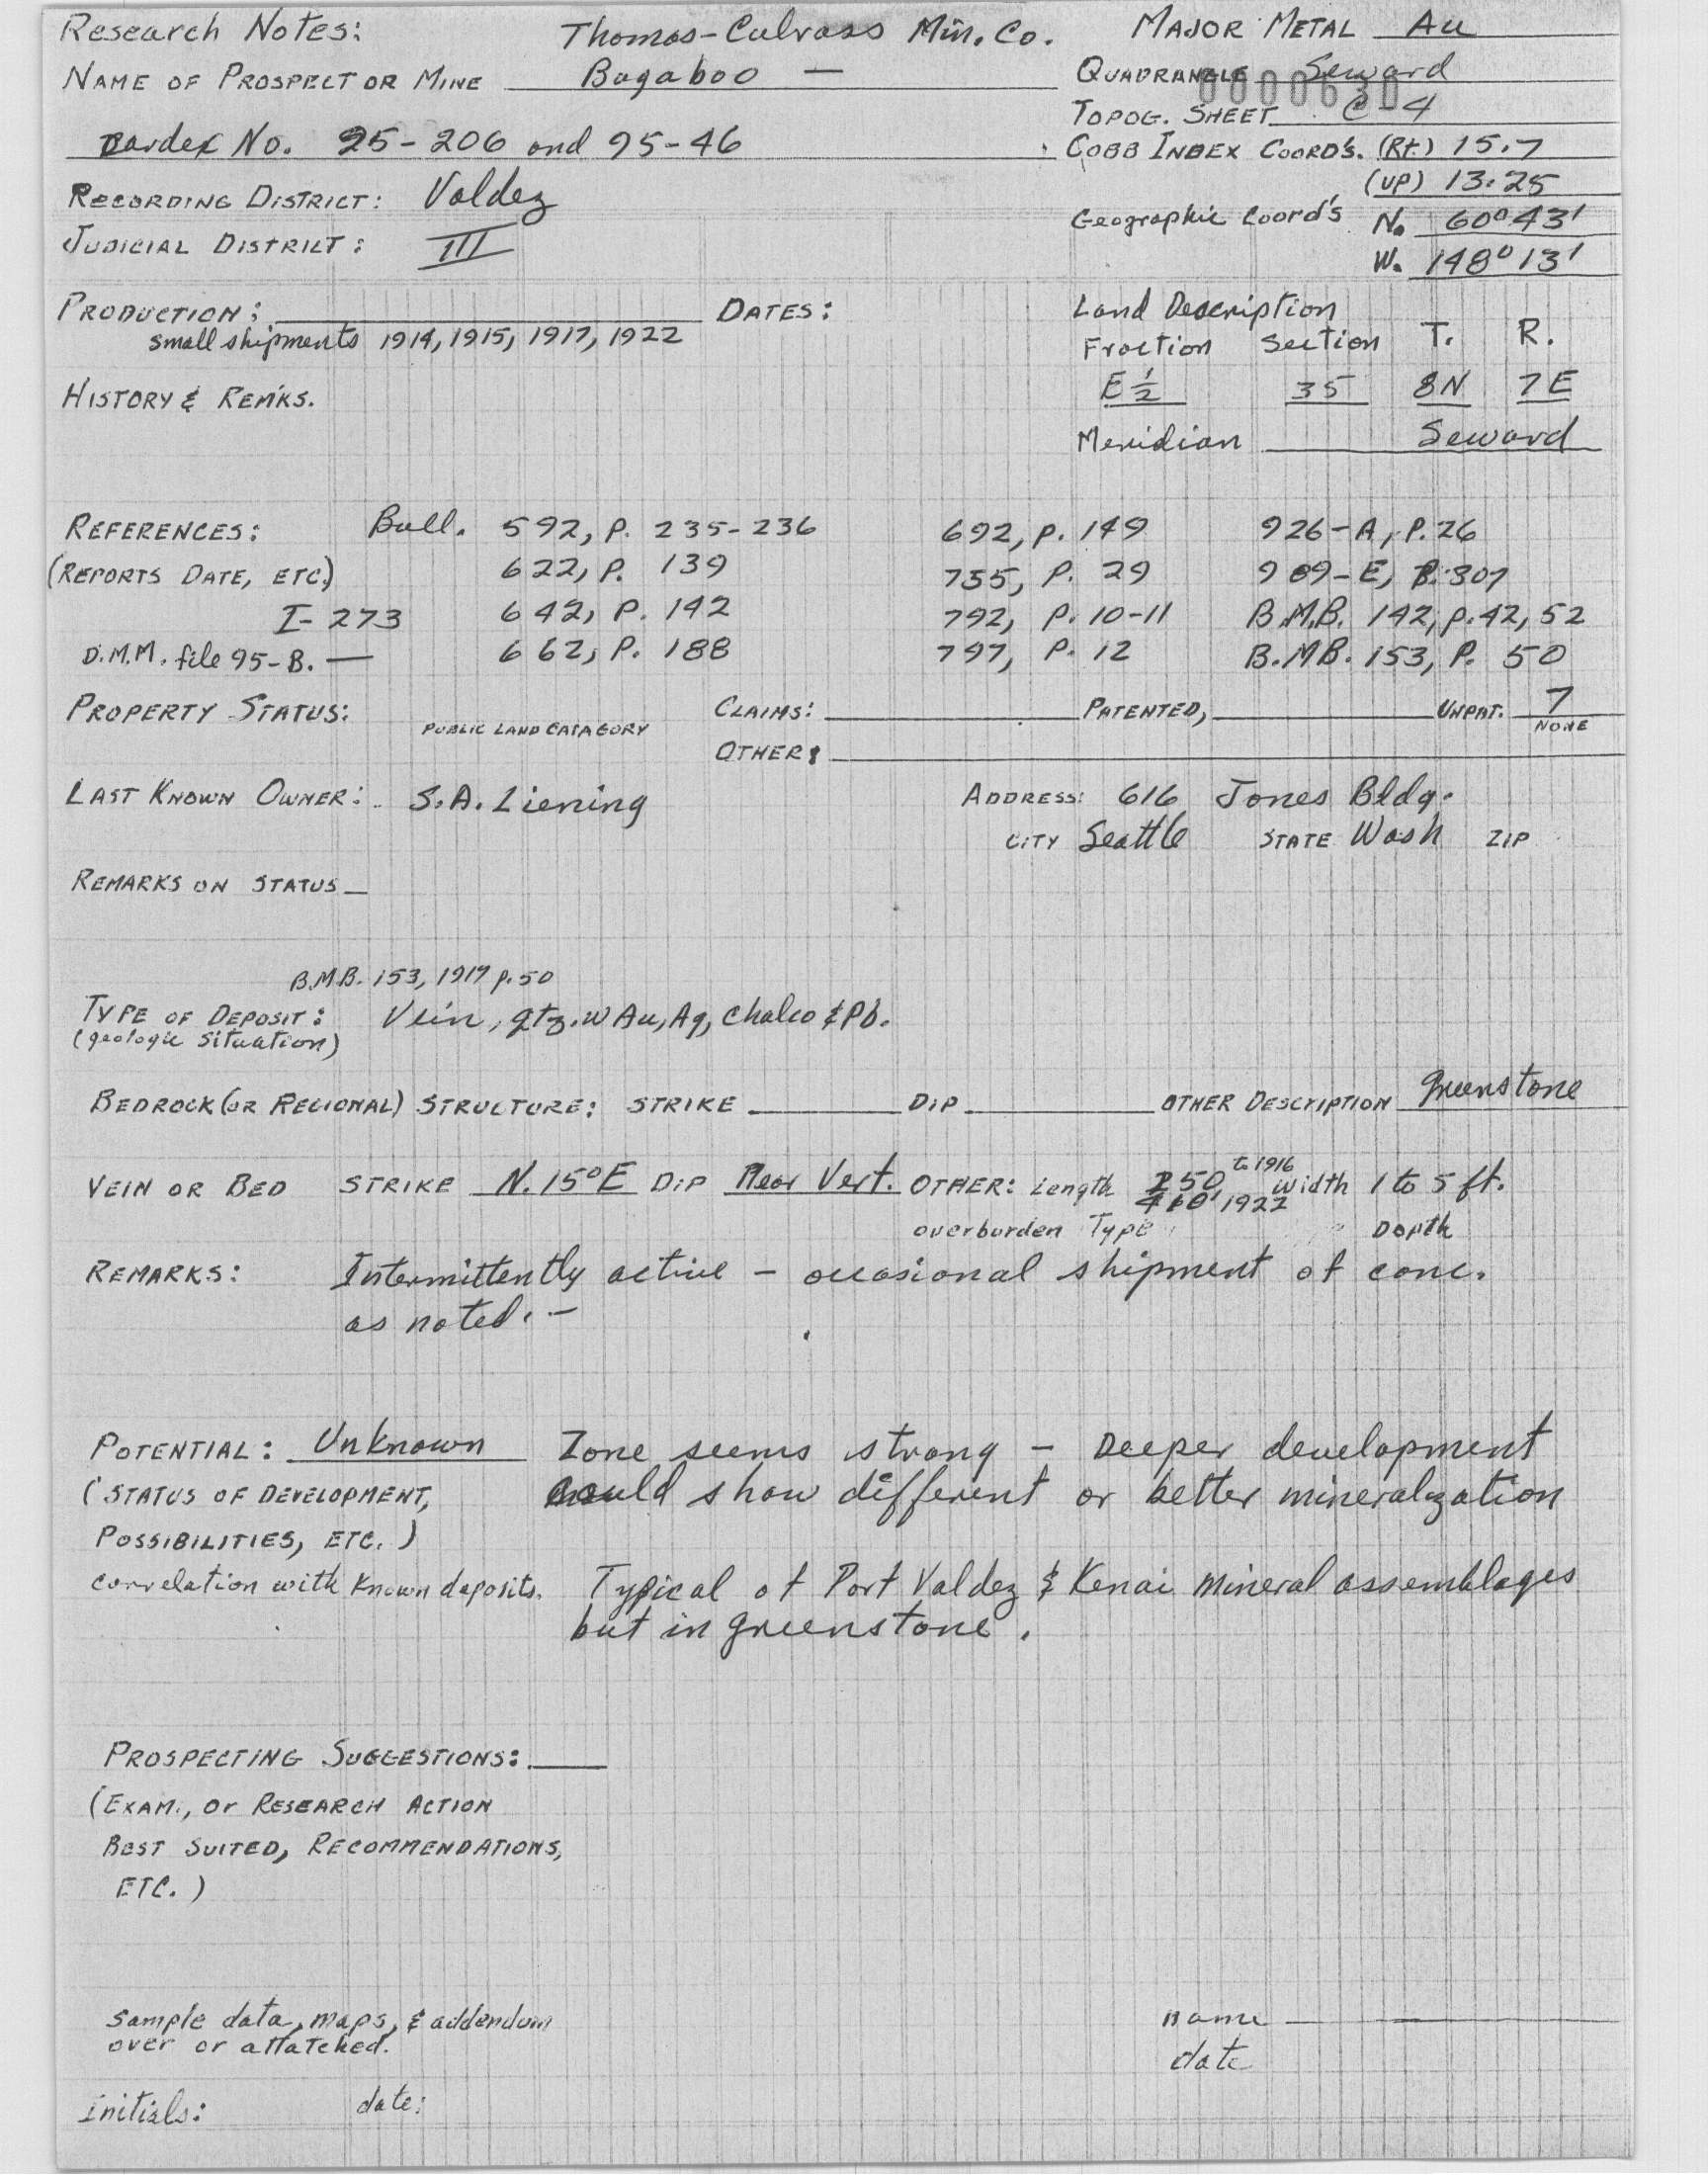 Research Notes: Thomas-Culross Min. Co. MAJOR METAL Au
NAME OF PROSPECT OR MINE Bugaboo — QUADRANGLE Seward
0000630
TOPOG. SHEET C-4
Cardex No. 95-206 and 95-46 COBB INDEX COORD'S. (Rt.) 15.7
(UP) 13.25
RECORDING DISTRICT: Valdez Geographic Coord's N. 60° 43'
JUDICIAL DISTRICT: III W. 148° 13'
PRODUCTION: DATES: Land Description
small shipments 1914, 1915, 1917, 1922 Fraction Section T. R.
HISTORY & REM'KS. E ½ 35 8N 7E
Meridian Seward
REFERENCES: Bull. 592, P. 235-236 692, P. 149 926-A, P. 26
(REPORTS DATE, ETC.) 622, P. 139 755, P. 29 989-E, P. 307
I-273 642, P. 142 792, P. 10-11 B.M.B. 142, p. 42, 52
D.M.M. file 95-B. — 662, P. 188 797, P. 12 B.M.B. 153, P. 50
PROPERTY STATUS: CLAIMS: PATENTED, UNPAT. 7
PUBLIC LAND CATAGORY NONE
OTHER:
LAST KNOWN OWNER: S.A. Liening ADDRESS: 616 Jones Bldg.
CITY Seattle STATE Wash ZIP
REMARKS ON STATUS —
B.M.B. 153, 1917 p. 50
TYPE OF DEPOSIT: Vein, qtz. w Au, Ag, chalco & Pb.
(geologic situation)
BEDROCK (OR REGIONAL) STRUCTURE: STRIKE DIP OTHER DESCRIPTION greenstone
VEIN OR BED STRIKE N. 15° E DIP Near Vert. OTHER: Length 250 to 1916 Width 1 to 5 ft.
410' 1922
overburden Type Depth
REMARKS: Intermittently active - occasional shipment of conc.
as noted. -
POTENTIAL: Unknown Zone seems strong - Deeper development
(STATUS OF DEVELOPMENT, could show different or better mineralization
POSSIBILITIES, ETC.)
correlation with known deposits. Typical of Port Valdez & Kenai mineral assemblages
but in greenstone.
PROSPECTING SUGGESTIONS:
(EXAM., or RESEARCH ACTION
BEST SUITED, RECOMMENDATIONS,
ETC.)
sample data, maps, & addendum name
over or attatched. date
Initials: date: